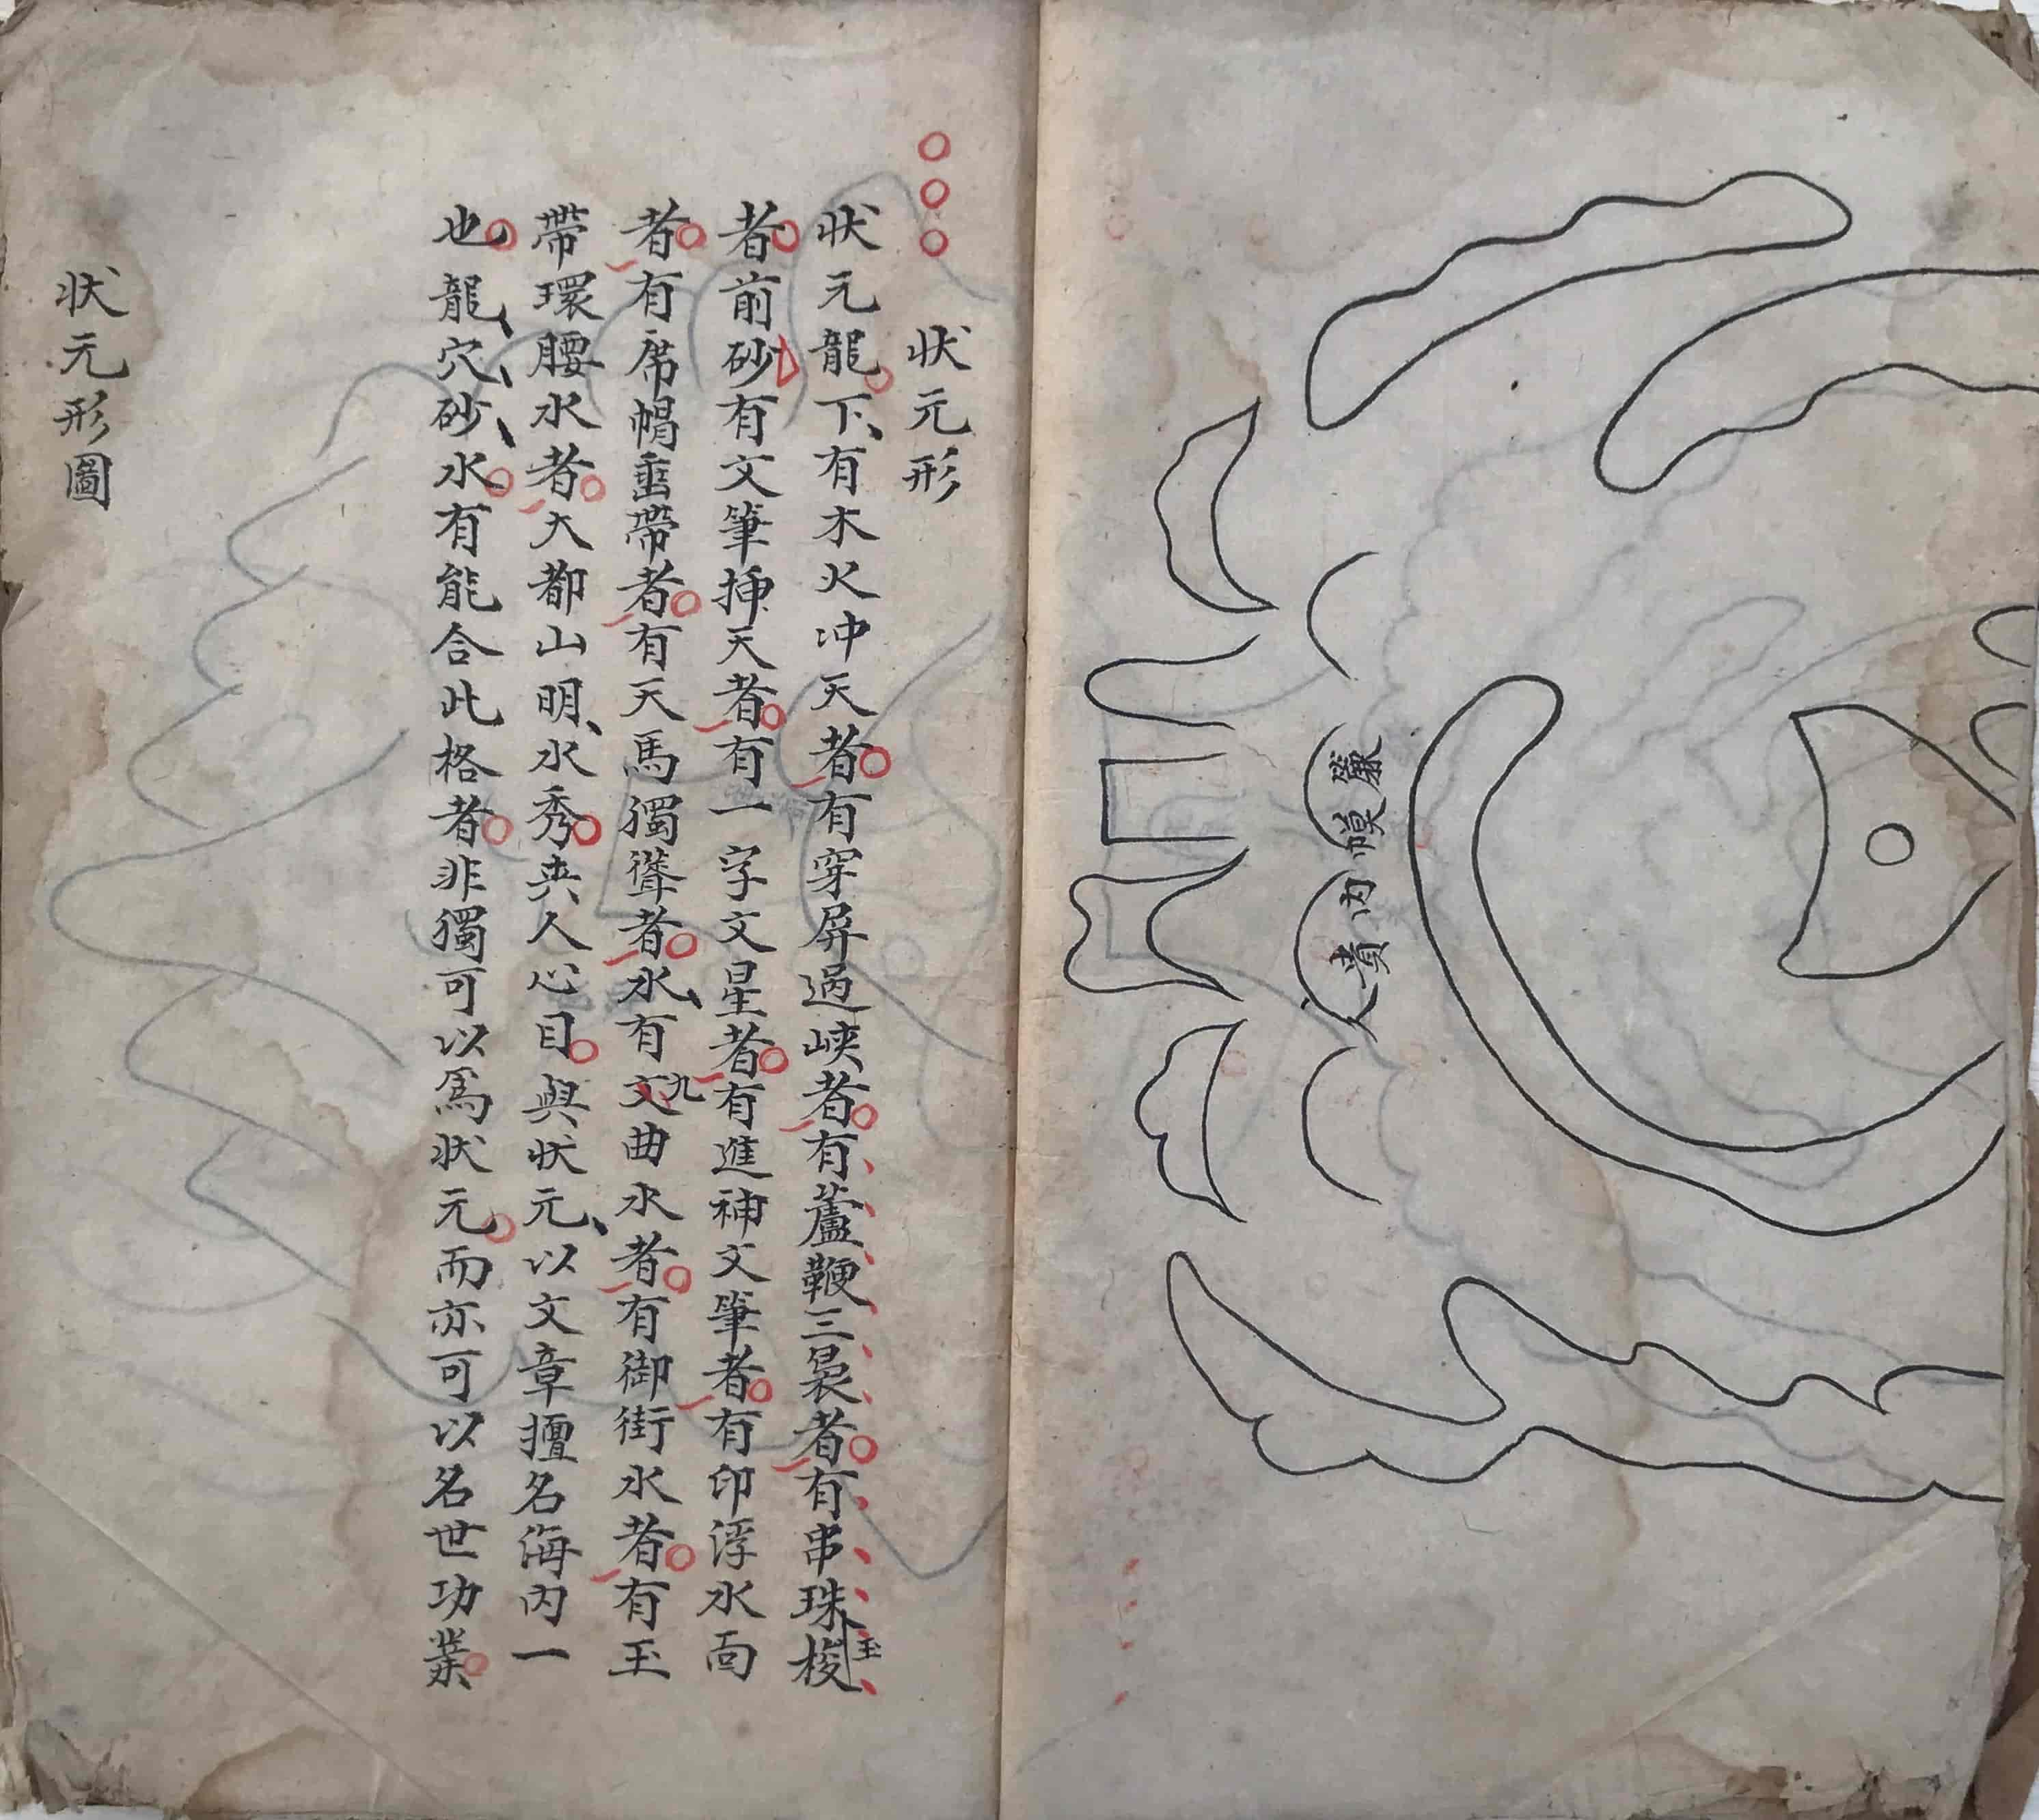 簾幙内貴人
狀元形
狀元龍下有木火冲天者有穿屏過峽者有蘆鞭三裊者有串珠玉梭
者前砂有文筆揷天者有一字文星者有進神文筆者有印浮水面
者有席帽垂帶者有天馬獨聳者水有文九曲水者有御街水者有玉
帶環腰水者大都山明水秀夾人心目與狀元以文章擅名海内一
也龍穴砂水有能合此格者非獨可以爲狀元而亦可以名世功業
狀元形圖